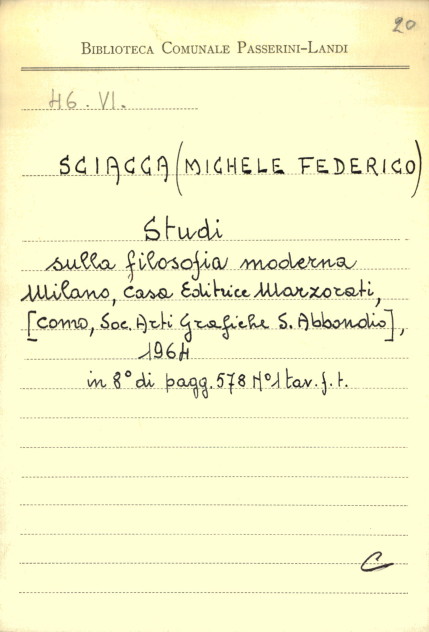 20
BIBLIOTECA COMUNALE PASSERINI-LANDI
46. VI.
SCIACCA (MICHELE FEDERICO)
Studi
sulla filosofia moderna
Milano, Casa Editrice Marzorati,
[Como, Soc. Arti Grafiche S. Abbondio],
1964
in 8° di pagg. 578 N°1 tav. f. t.
C